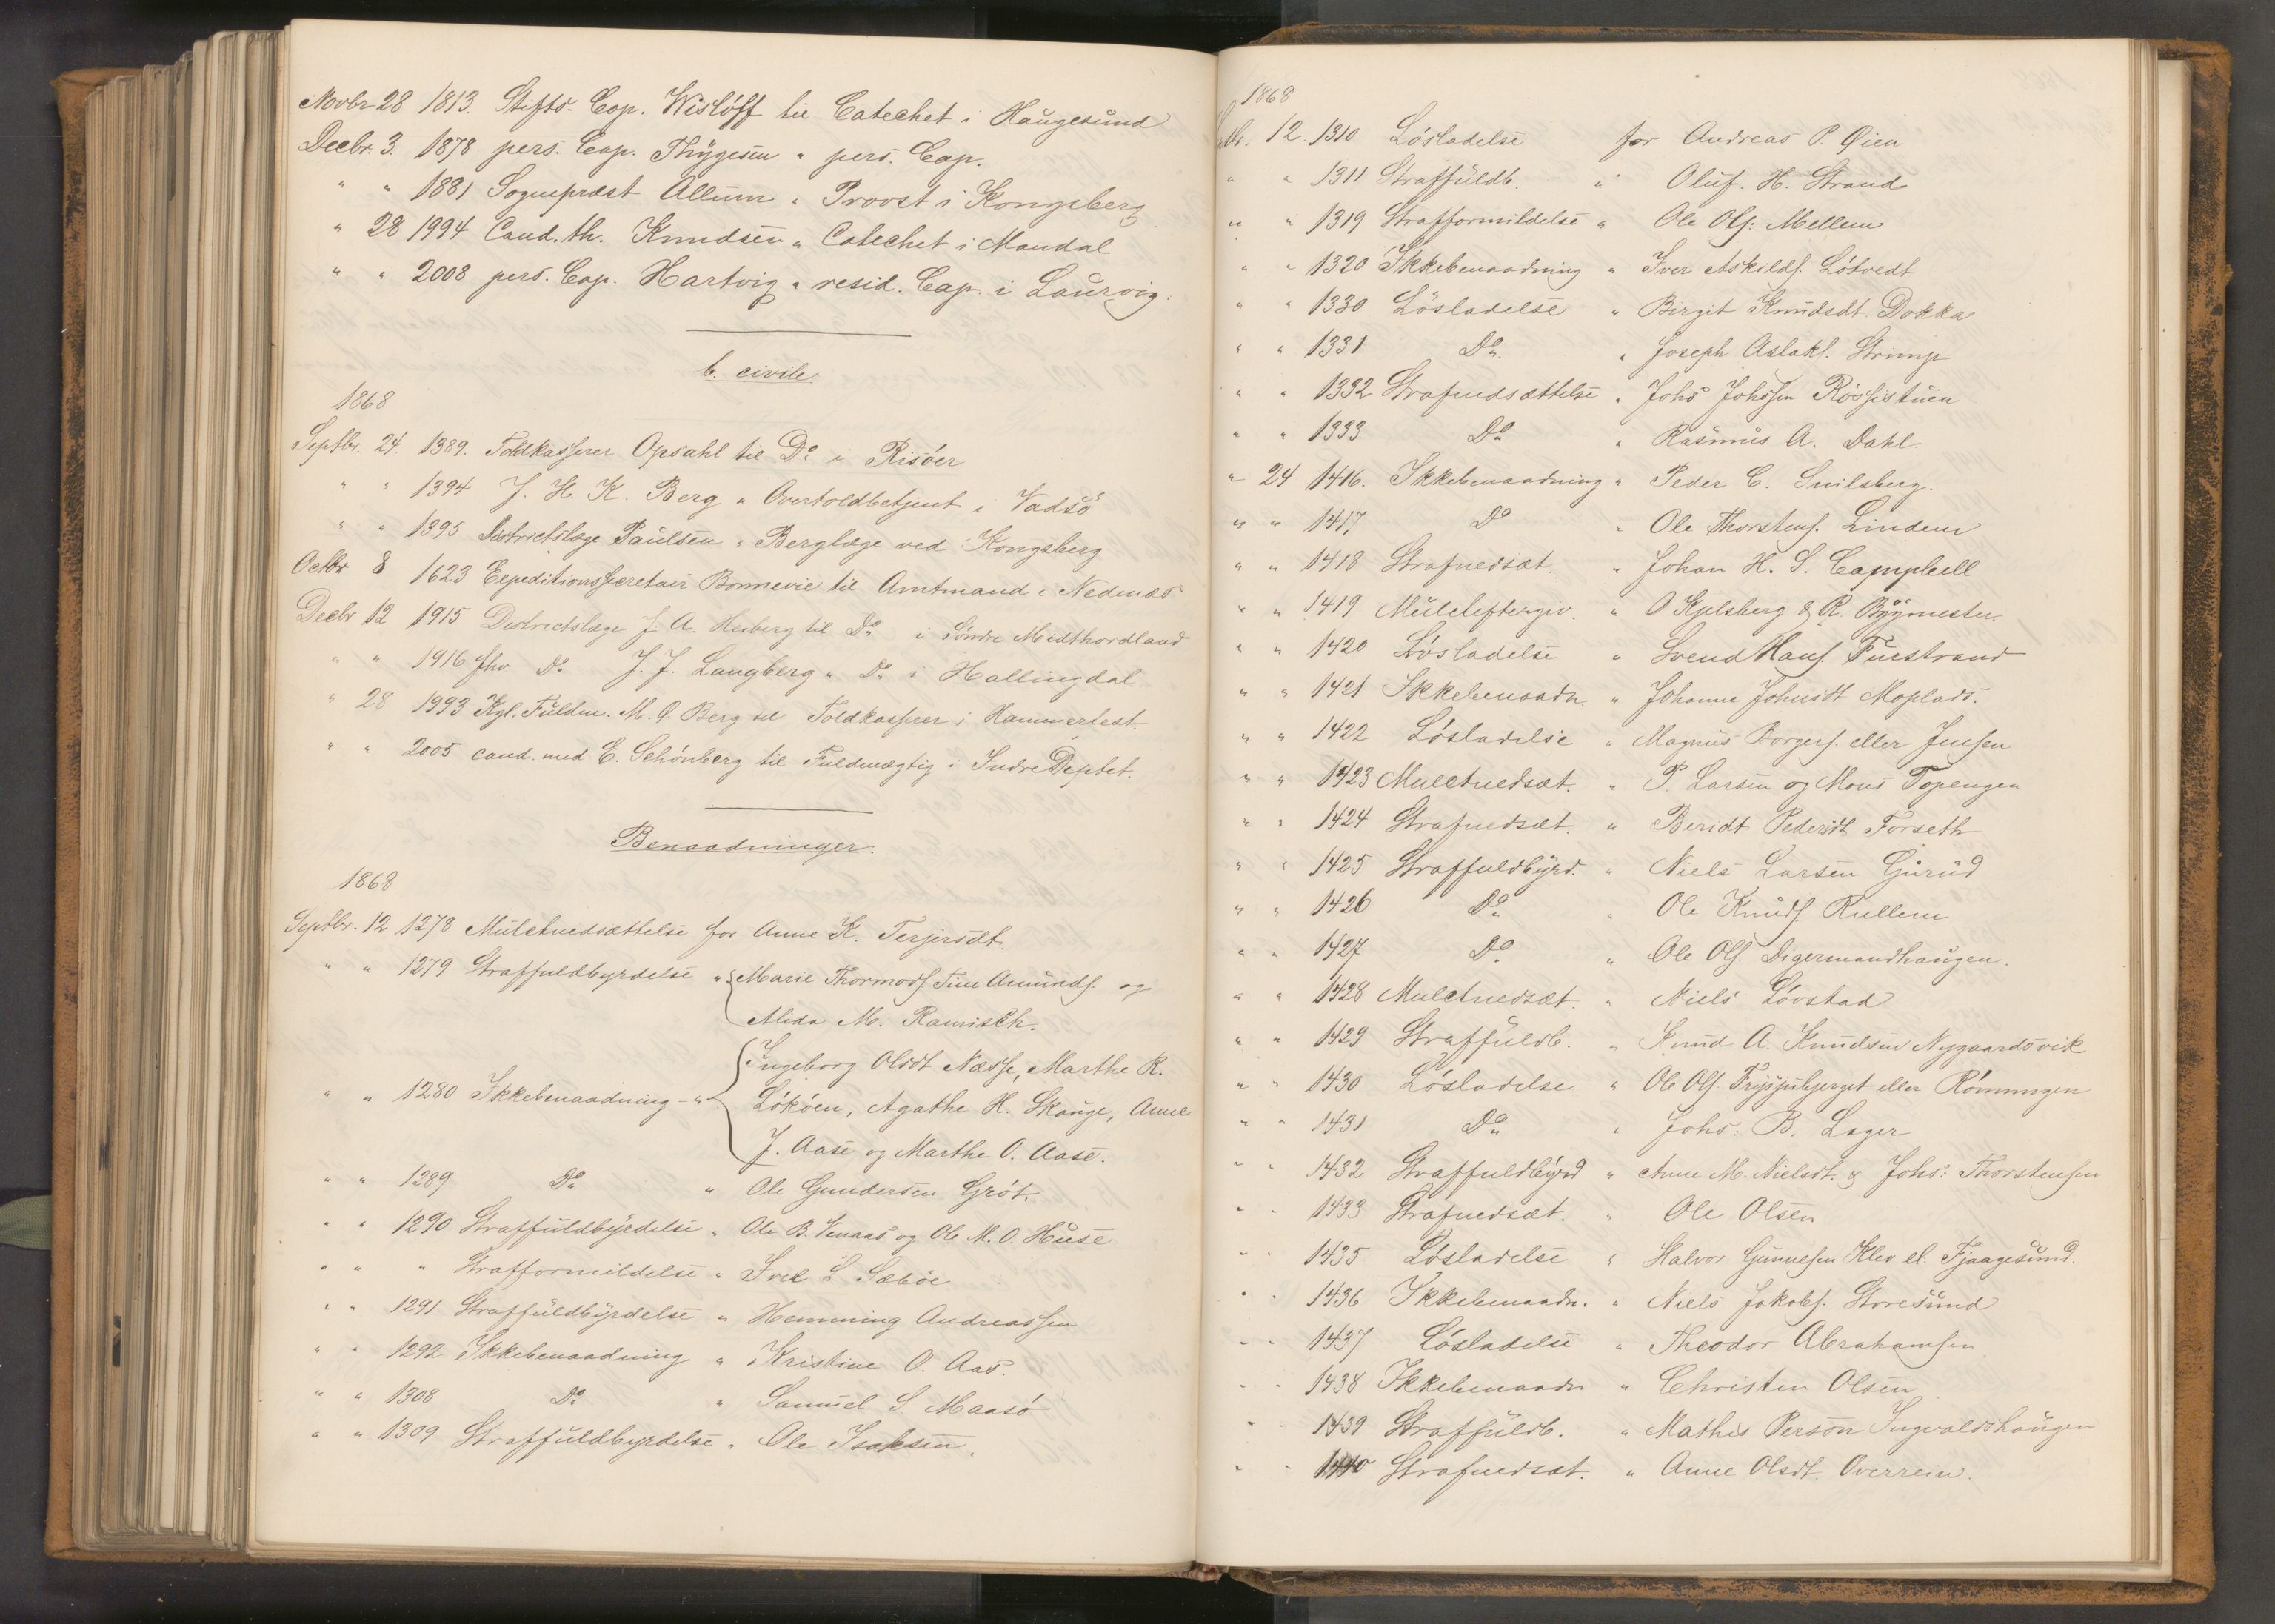 Novbr 28 1813. Stifts-Cap. Wisløff til Catechet i Haugesund
Decbr. 3. 1878 pers. Cap. Thygesen " pers. Cap.
" " 1881 Sognepræst Allum " Provst i Kongsberg
" 28 1994 Cand. th. Knudsen " Catechet i Mandal
" " 2008 pers. Cap. Hartvig " resid. Cap. i Laurvig.
b. civile.
1868
Septbr. 24. 1389. Toldkasserer Opsahl til Do i Risøer
" " 1394 J. H. K. Berg " Overtoldbetjent i Vadsö
" " 1395 Districtslæge Paulsen " Berglæge ved Kongsberg
Octbr 8 1623 Expeditionssecretair Bonnevie til Amtmand i Nedenæs
Decbr 12 1915 Districtslæge J. A. Herberg til Do i Söndre Midthordland
" " 1916 fhv Do J. J. Langberg " Do i Hallingdal
" 28 1993 Kgl. Fuldm. M. G. Berg til Toldkasserer i Hammerfest.
" " 2005 cand. med E. Schönberg til Fuldmægtig i Indre Deptet.
Benaadninger.
1868
Septbr. 12 1278 Mulctnedsættelse for Anne K. Terjersdt.
" " 1279 Straffuldbyrdelse " Marie Thormods. Tine Amunds. og
Alida M. Ramisch.
Ingeborg Olsdt Næsse, Marthe R.
" " 1280 Ikkebenaadning - " Lököen, Agathe H. Skauge, Anne
J. Aase og Marthe O. Aase.
" " 1289 Do " Ole Gundersen Gröt.
" " 1290 Straffuldbyrdelse " Ole B. Venaas og Ole M. O. Huse
" " " Strafformildelse " Iver L. Sæböe
" " 1291 Straffuldbyrdelse " Hemming Andreassen
" " 1292 Ikkebenaadning " Kristine O. Aas.
" " 1308 Do " Samuel S. Maasö
" " 1309 Straffuldbyrdelse " Ole Isaksen.
1868
12. 1310 Lösladelse for Andreas P. Øien
" " 1311 Straffuldb. " Oluf. H. Strand
" " 1319 Strafformildelse " Ole Ols: Mellem
" " 1320 Ikkebenaadning " Iver Askilds. Lötvedt
" " 1330 Lösladelse " Birgit Knudsdt. Dokka
" " 1331 Do " Joseph Aslaks. Strimp
" " 1332 Strafnedsættelse " Johs Johssen Rössistuen
" " 1333 Do " Rasmus A. Dahl
" 24 1416. Ikkebenaadning " Peder C. Snilsberg.
" " 1417. Do " Ole Thorstens. Lindem
" " 1418 Strafnedsæt. " Johan H. S. Campbell
" " 1419 Mulcteftergiv. " O Kylsberg & R. Bygmester.
" " 1420 Lösladelse " Svend Hans. Furstrand
" " 1421 Ikkebenaadn. " Johanne Johnsdt Moplads.
" " 1422 Lösladelse " Magnus Borgers. eller Jensen
" " 1423 Mulctnedsæt. " P. Larsen og Mons Topengen
" " 1424 Strafnedsæt. " Beridt Pedersdt Forseth
" " 1425 Straffuldbyrd. " Niels Larsen Gurud
" " 1426 Do " Ole Knuds. Rullem
" " 1427 Do " Ole Ols. Degermandhaugen.
" " 1428 Mulctnedsæt. " Niels Lövstad
" " 1429 Straffuldb. " Knud A. Knudsen Nygaardsvik
" " 1430 Lösladelse " Ole Ols. Trysjubjerget eller Römmingen
" " 1431 Do " Johs: B. Lager
" " 1432 Straffuldbyrd " Anne M. Nielsdt. & Johs: Thorstensen
" " 1433 Strafnedsæt. " Ole Olsen
" " 1435 Lösladelse " Halvor Gunnelsen Klev el. Fjaagesund.
" " 1436 Ikkebenaadn. " Niels Jakobs. Storesund
" " 1437 Lösladelse " Theodor Abrahamsen
" " 1438 Ikkebenaadn " Christen Olsen
" " 1439 Straffuldb. " Mathis Person Ingvaldshaugen
" " 1440 Strafnedsæt. " Anne Olsdt. Overrein.